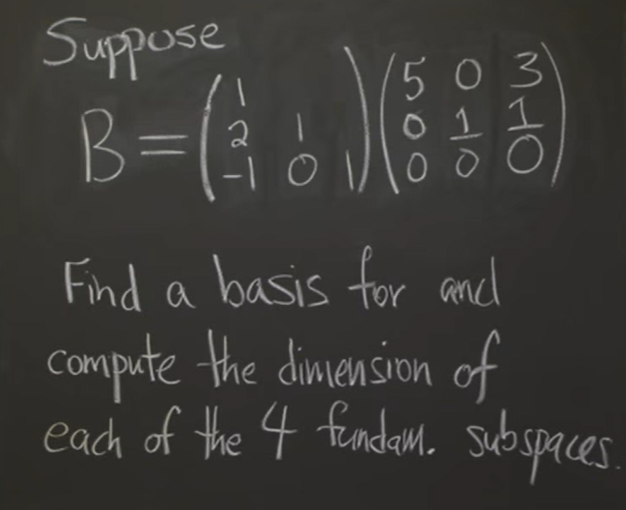 Suppose
B = ( 1
2 1
-1 0 1 ) ( 5 0 3
0 1 1
0 0 0 )
Find a basis for and
compute the dimension of
each of the 4 fundam. subspaces.